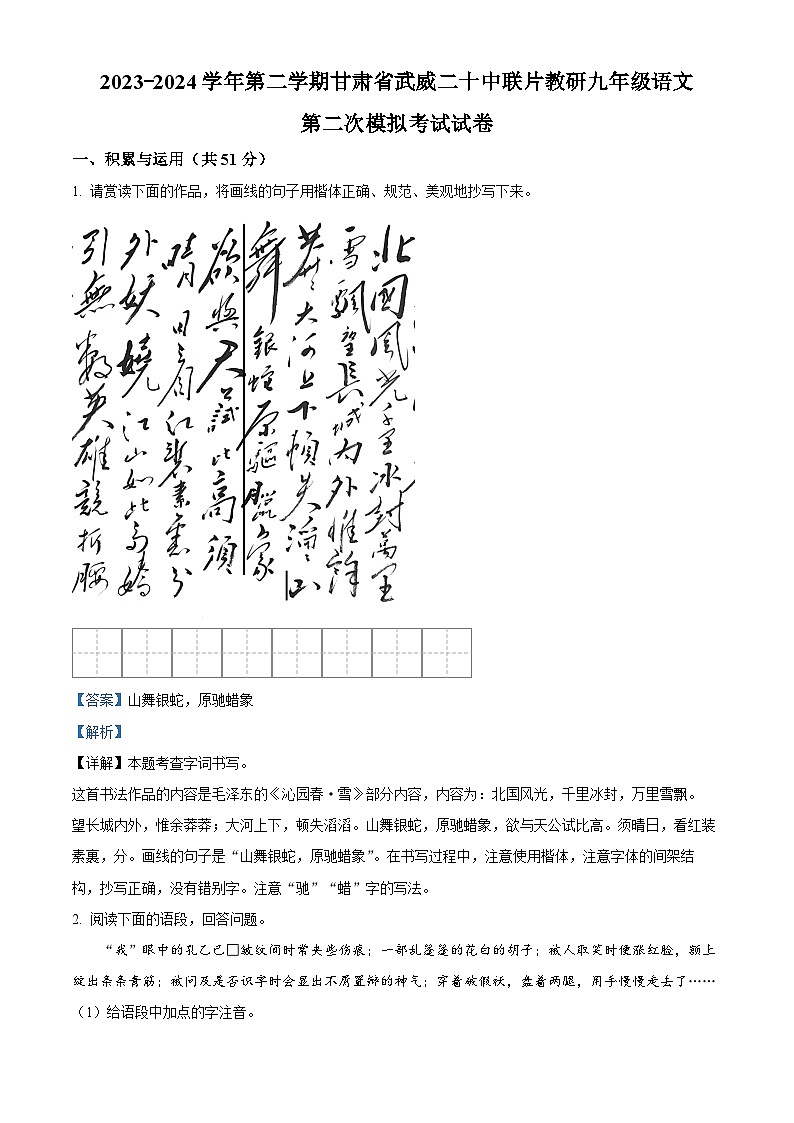 2023-2024学年第二学期甘肃省武威二十中联片教研九年级语文
第二次模拟考试试卷
一、积累与运用（共51分）
1. 请赏读下面的作品，将画线的句子用楷体正确、规范、美观地抄写下来。
北國風光千里冰封萬里
雪飄望長城内外惟餘
莽莽大河上下頓失滔滔山
舞銀蛇原驅臘象
欲與天公試比高須
晴日看紅裝素裹分
外妖嬈江山如此多嬌
引無數英雄競折腰
【答案】山舞银蛇，原驰蜡象
【解析】
【详解】本题考查字词书写。
这首书法作品的内容是毛泽东的《沁园春·雪》部分内容，内容为：北国风光，千里冰封，万里雪飘。
望长城内外，惟余莽莽；大河上下，顿失滔滔。山舞银蛇，原驰蜡象，欲与天公试比高。须晴日，看红装
素裹，分。画线的句子是“山舞银蛇，原驰蜡象”。在书写过程中，注意使用楷体，注意字体的间架结
构，抄写正确，没有错别字。注意“驰”“蜡”字的写法。
2. 阅读下面的语段，回答问题。
“我”眼中的孔乙已□皱纹间时常夹些伤痕；一部乱蓬蓬的花白的胡子；被人取笑时便涨红脸，额上
绽出条条青筋；被问及是否识字时会显出不屑置辩的神气；穿着破假袄，盘着两腿，用手慢慢走去了……
（1）给语段中加点的字注音。